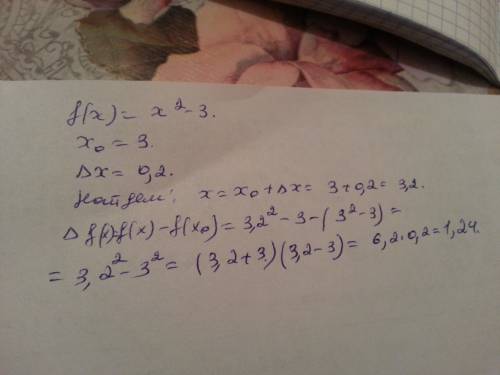 f(x) = x² - 3.
x₀ = 3.
Δx = 0,2.
Найдем: x = x₀ + Δx = 3 + 0,2 = 3,2.
Δf(x)=f(x) - f(x₀) = 3,2² - 3 - (3² - 3) =
= 3,2² - 3² = (3,2 + 3)(3,2 - 3) = 6,2 · 0,2 = 1,24.